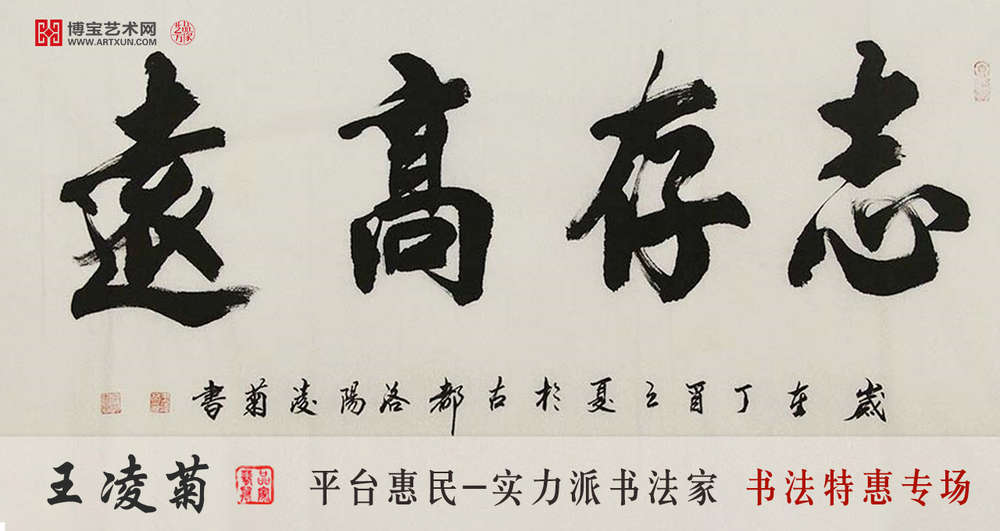 博宝艺术网
WWW.ARTXUN.COM
志存高遠
歲在丁酉之夏於古都洛陽凌菊書
王凌菊
平台惠民-实力派书法家 书法特惠专场